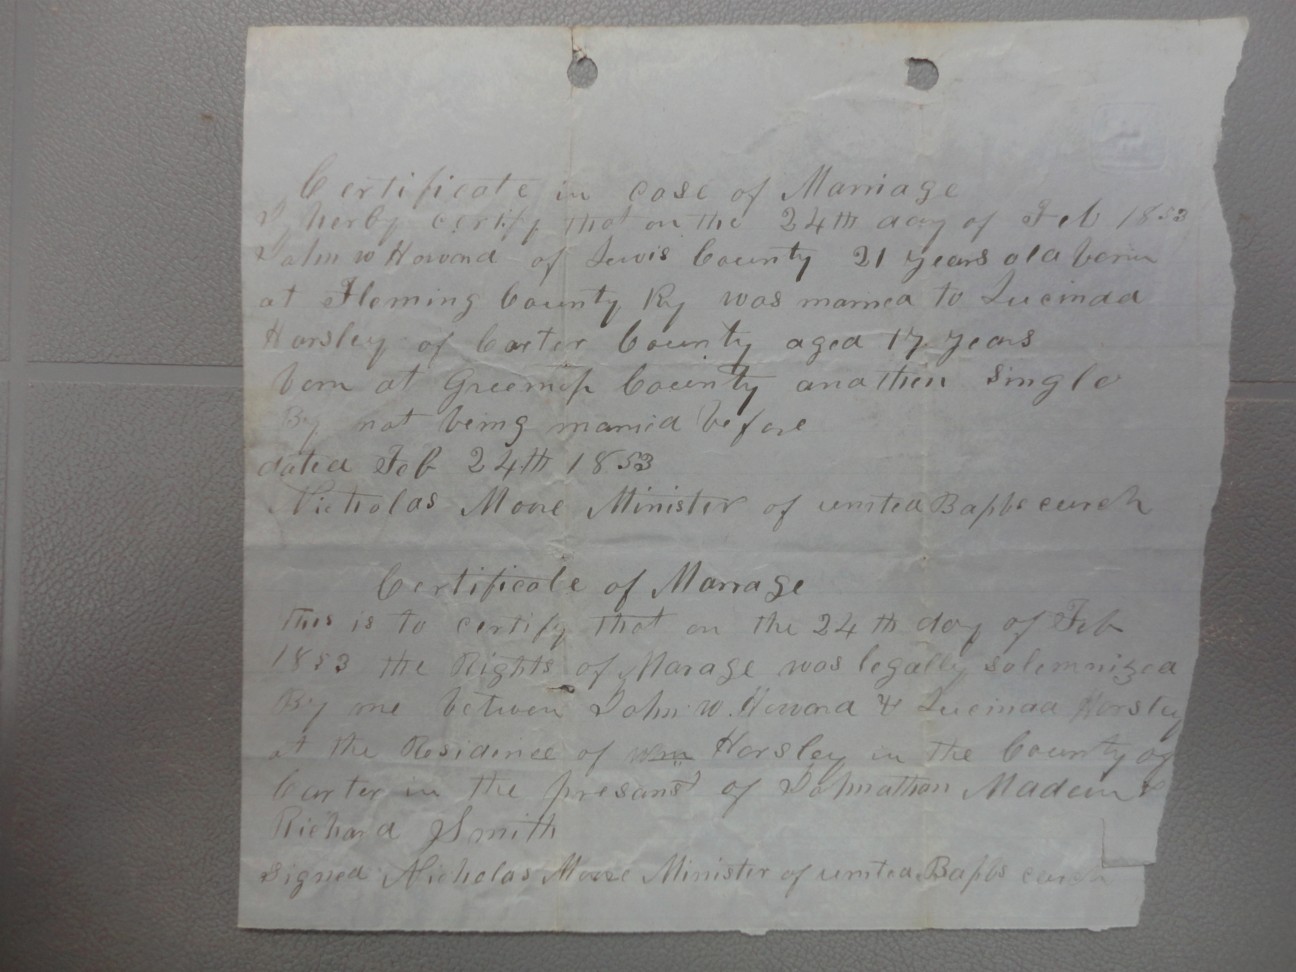 Certificate in case of Marriage
I herby certify that on the 24th day of Feb 1853
John W Howard of Lewis County 21 years old born
at Fleming County Ky was married to Lucinda
Horsley of Carter County aged 17 years
born at Greenup County another single
By not being married before
dated Feb 24th 1853
Nicholas Moore Minister of united Bapts curch
Certificate of Marrage
This is to certify that on the 24th day of Feb
1853 the Rights of Marage was legally solemnized
By me between John W. Howard & Lucinda Horsley
at the Residince of Wm Horsley in the County of
Carter in the presans of Johnathan Madden &
Richard J Smith
Signed Nicholas Moore Minister of united Bapts curch